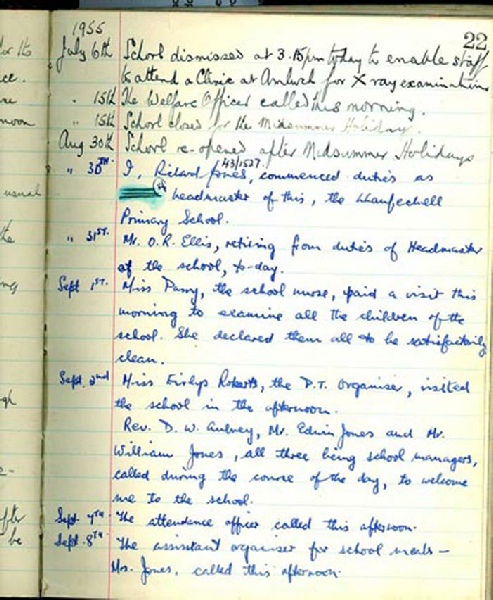 22
1955
July 6th School dismissed at 3.15pm today to enable staff
to attend a Clinic at Amlwch for X ray examination
" 15th The Welfare Officer called this morning.
" 15th School closed for the Midsummer Holiday.
Aug 30th School re-opened after Midsummer Holidays
" 30TH. I, Richard Jones, 43/1527. commenced duties as
headmaster of this, the Llanfechell
Primary School.
" 31ST. Mr. O.R. Ellis, retiring from duties of Headmaster
of the school, to-day.
Sept 1ST. Miss Parry, the school nurse, paid a visit this
morning to examine all the children of the
school. She declared them all to be satisfactorily
clean.
Sept. 2nd Miss Eirlys Roberts, the P.T. Organiser, visited
the school in the afternoon.
Rev. D. W. Aubrey, Mr. Edwin Jones and Mr.
William Jones, all three being school managers,
called during the course of the day, to welcome
me to the school.
Sept 7TH. The attendence officer called this afternoon.
Sept. 8TH The assistant organiser for school meals –
Mrs. Jones, called this afternoon.